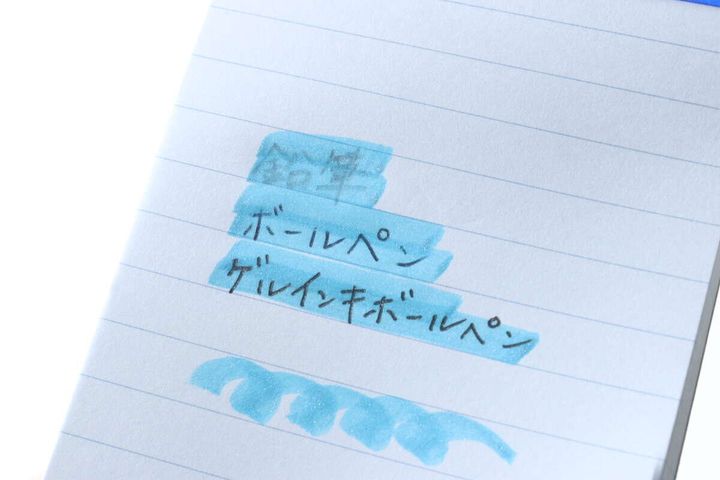 鉛筆
ボールペン
ゲルインキボールペン